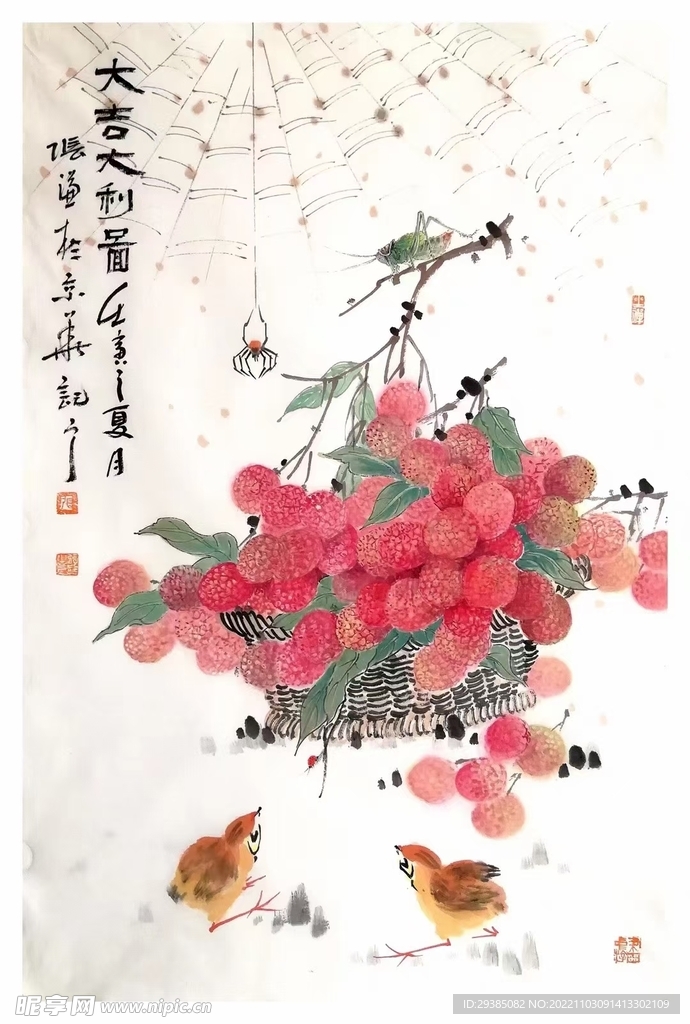 大吉大利图 壬寅之夏月
张谦於京华记之
昵享网 www.nipic.cn
ID:29385082 NO:20221103091413302109